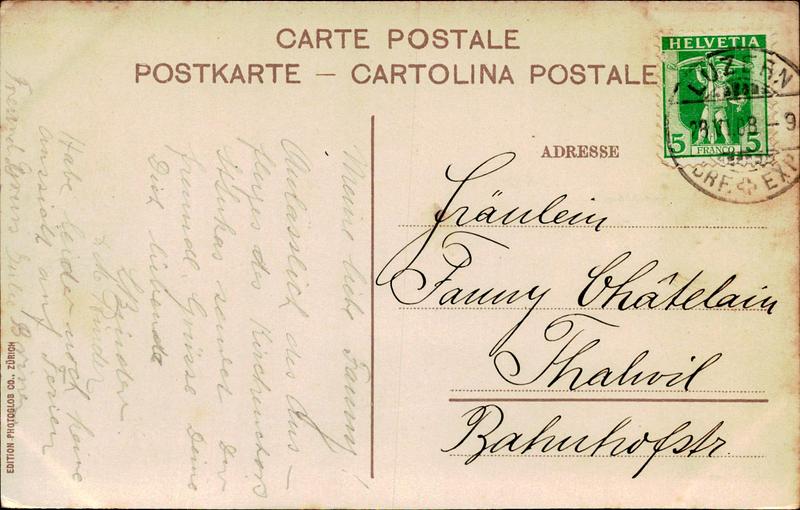 CARTE POSTALE
POSTKARTE – CARTOLINA POSTALE
HELVETIA
5 FRANCO 5
LUZERN
BRF. EXP
ADRESSE
Fräulein
Fanny Châtelain
Thalwil
Bahnhofstr.
Meine liebe Fanny!
Anlässlich des Aus-
fluges des Kirchenchors
sendet Dir
freundl. Grüsse Deine
Dich liebende
Habe leider noch keine
Aussicht auf Ferien
EDITION PHOTOGLOB CO., ZÜRICH